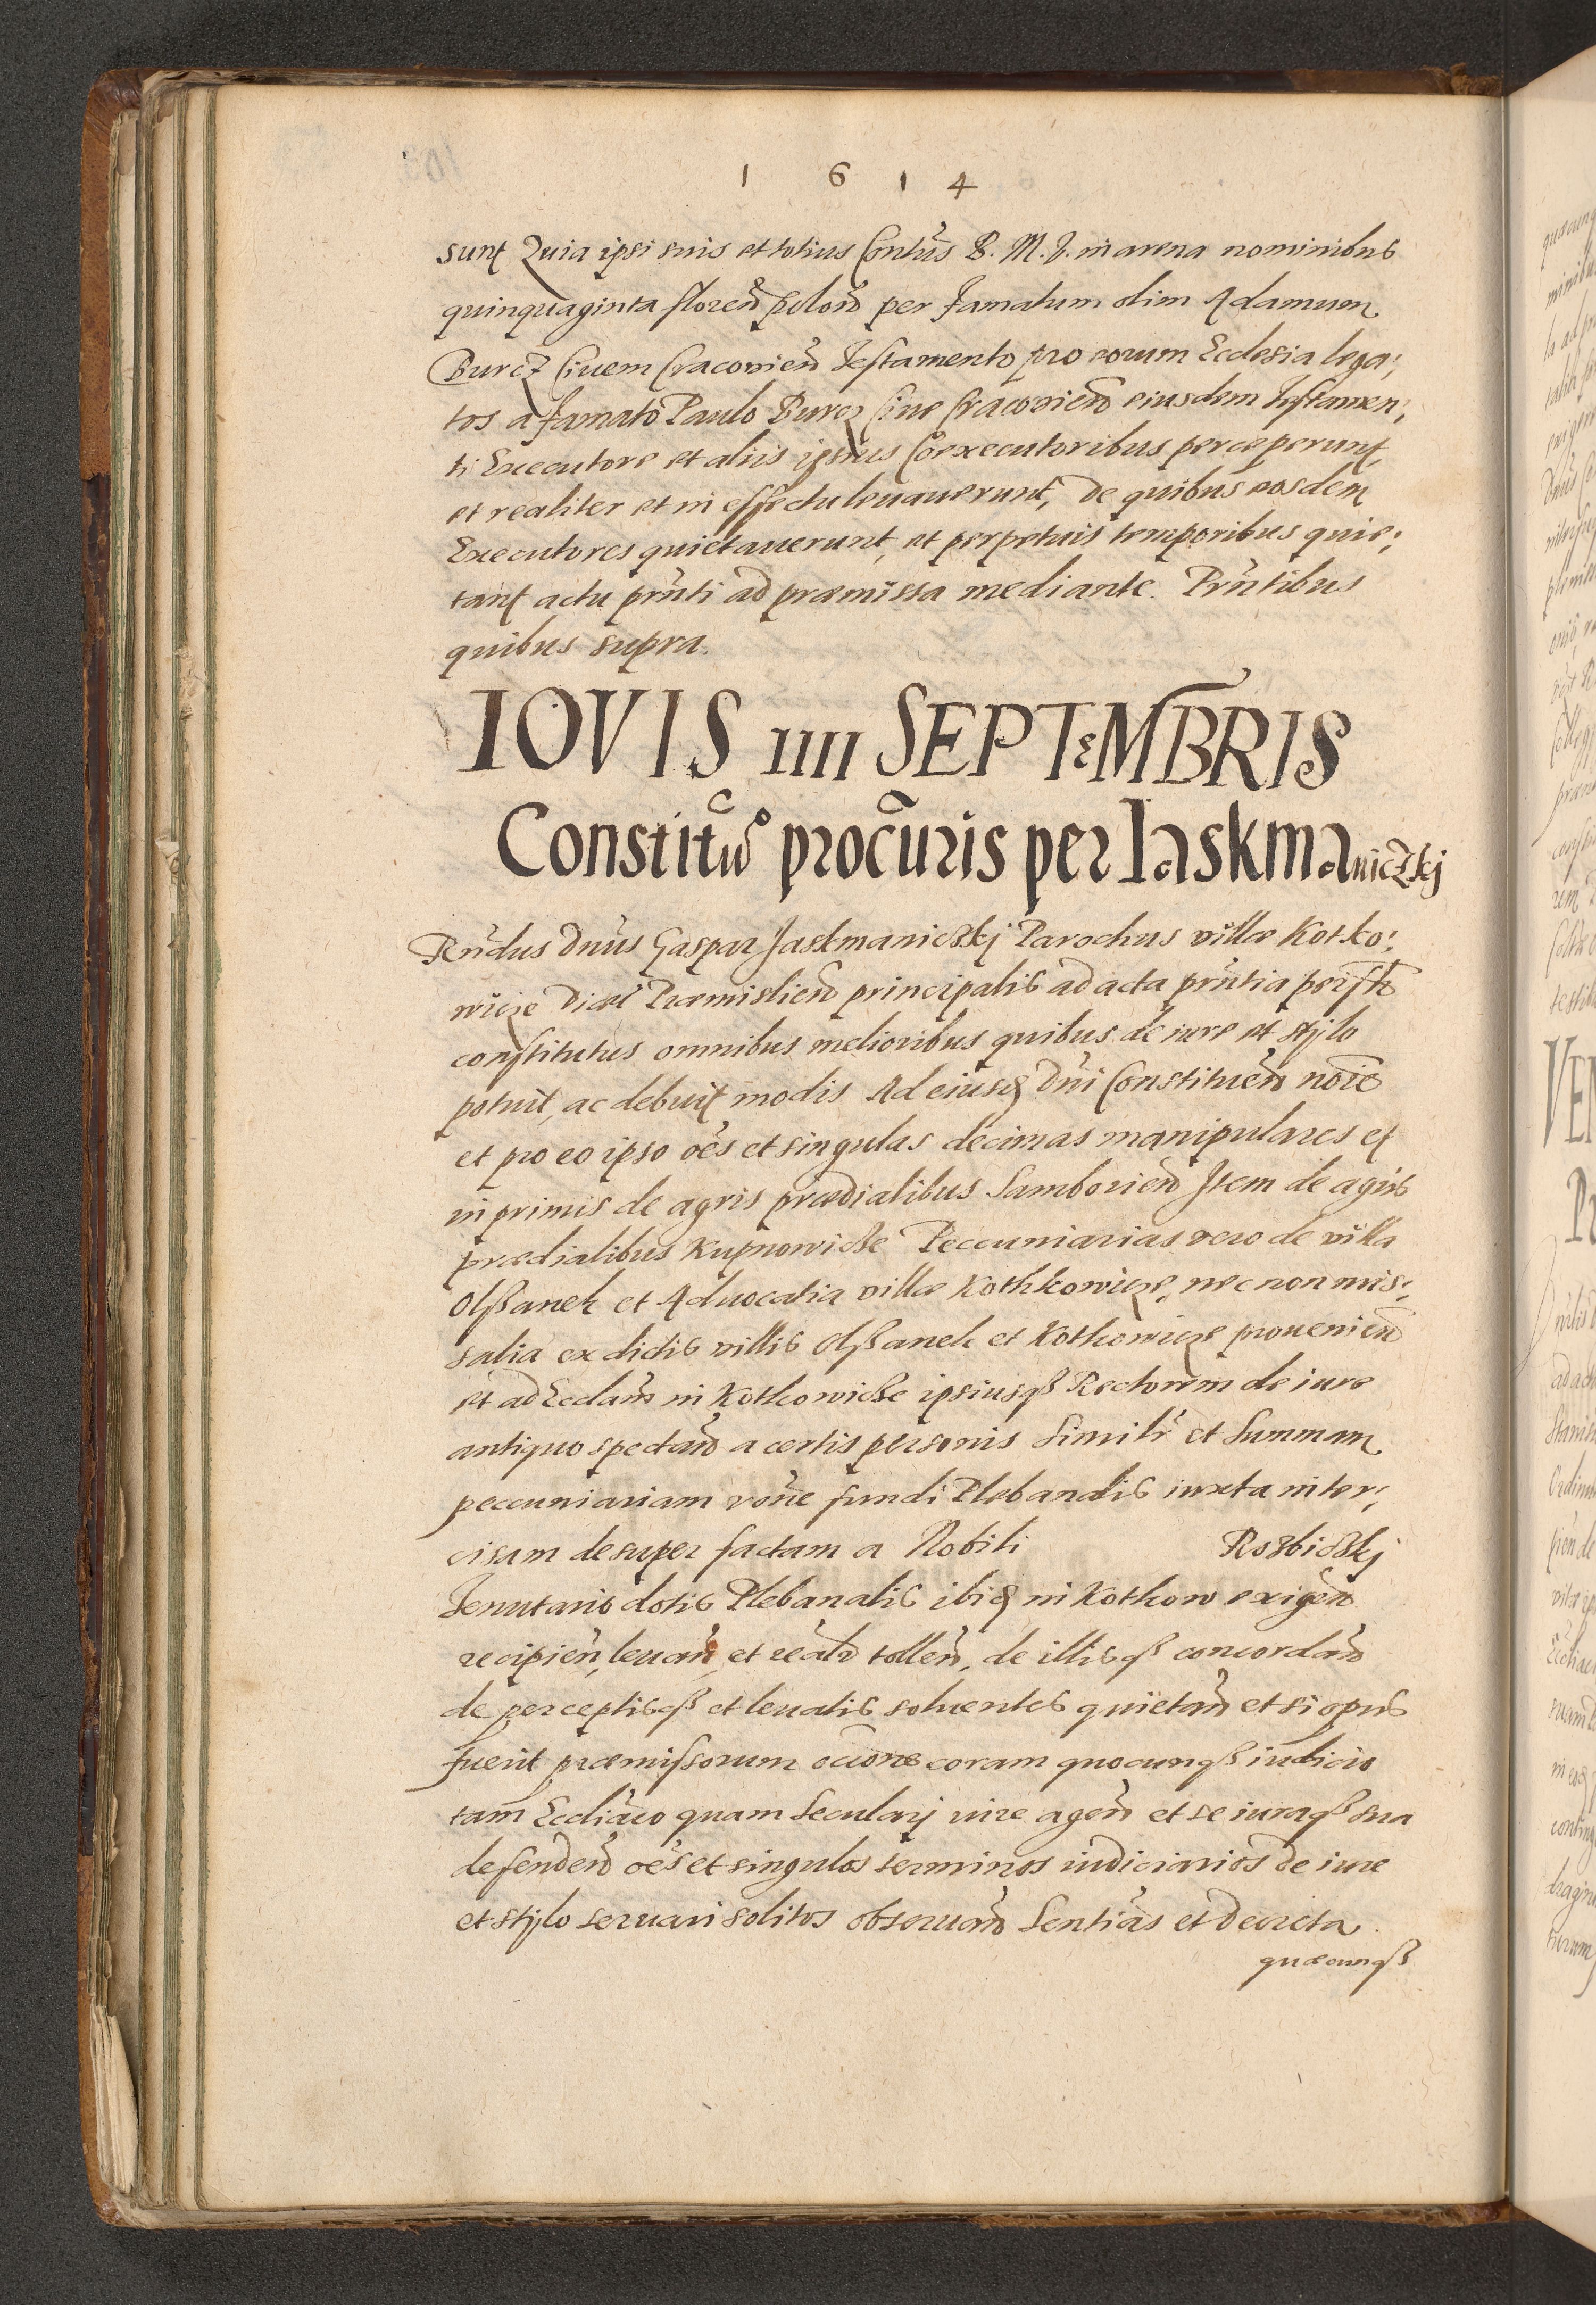 1 6 1 4
sunt Quia ipsi suis et totius Contũs B. M. V. in arena nominibus
quinquaginta floreñ poloñ per famatum olim Adamum
Burcz Civem Cracovieñ Testamento pro eorum Ecclesia lega;
tos a famato Paulo Burcz Cive Cracovieñ eiusdem Testamen;
ti Executore et aliis ipsius Coexecutoribus perceperunt
et realiter et in effectu levauerunt, de quibus eosdem
Executores quietauerunt, et perpetuis temporibus quie;
tant actu prñti ad præmissa mediante. Prñtibus
quibus supra.
IOVIS IIII SEPTEMBRIS
Constitũo procũris per Iaskmaniczkj
Rñdus Dnũs Gaspar Jaskmaniczkj Parochus villæ Kotko;
wicze Diæc Præmislieñ principalis ad acta prñtia
constitutus omnibus melioribus quibus de iure et stylo
potuit, ac debuit modis Ad eiusd Dñi Constitueñ noĩe
et pro eo ipso oẽs et singulas decimas manipulares et
in primis de agris prædialibus Samborieñ Item de agris
prædialibus Kupnowicze Peccuniarias vero de villa
Olßanek et Aduocatia villæ Kothkowicze, nec non mis;
salia ex dictis villis Olßanek et Kotkowicze prouenieñ
et ad Ecclam̃ in Kotkowicze ipsiusqß Rectorem de iure
antiquo spectañ a certis personis similr̃ et Summam
peccuniariam rõne fundi Plebanalis iuxta inter;
cisam desuper factam a Nobili Rozbiczkj
Tenutario dotis Plebanalis ibid in Kotkow exigeñ
recipieñ, leuañ, et realr̃ tolleñ, de illisqß concordañ
de perceptisqß et leuatis soluentes quietañ et si opus
fuerit præmissorum occõne coram quocunqß iudicio
tam Eccliãco quam Seculary iure ageñ et se iuraqß sua
defendeñ oẽs et singulos terminos iudiciarios de iure
et stylo seruari solitos obseruañ Sentiãs et Decreta
quæcunqß